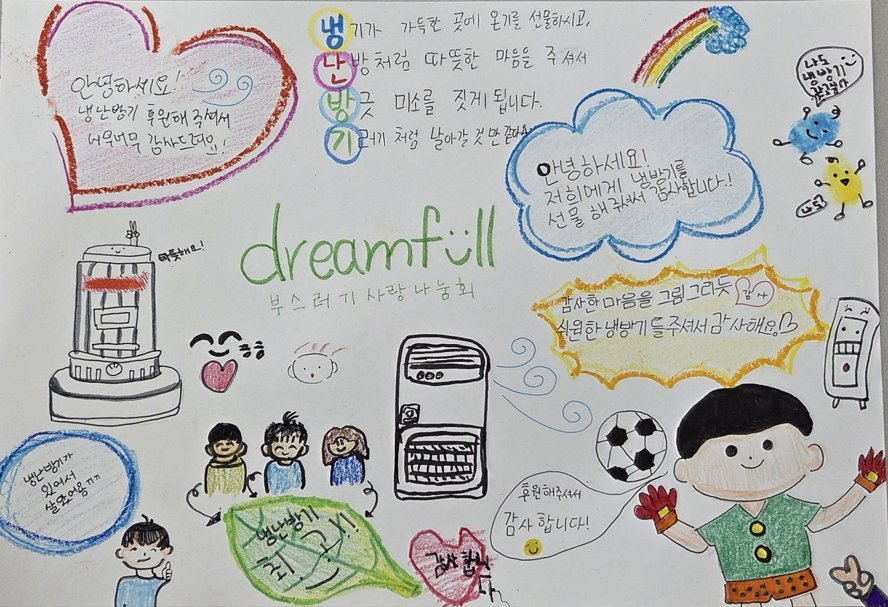 안녕하세요!
냉난방기 후원해 주셔서
너무너무 감사드려요!
냉기가 가득한 곳에 온기를 선물하시고,
난방처럼 따뜻한 마음을 주셔서
방긋 미소를 짓게 됩니다.
기러기처럼 날아갈 것만 같아요
나도
냉방기
안녕하세요!
저희에게 냉방기를
선물해주셔서 감사합니다.!
나도!
dreamfüll
부스러기사랑나눔회
따뜻해요!
감사한 마음을 그림그리듯 감사
쉬원한 냉방기를 주셔서 감사해요♡
흠흠
냉난방기가
있어서
살았어용 ㅠㅠ
냉난방기
최고!!
감사합니
다
후원해주셔서
감사합니다!